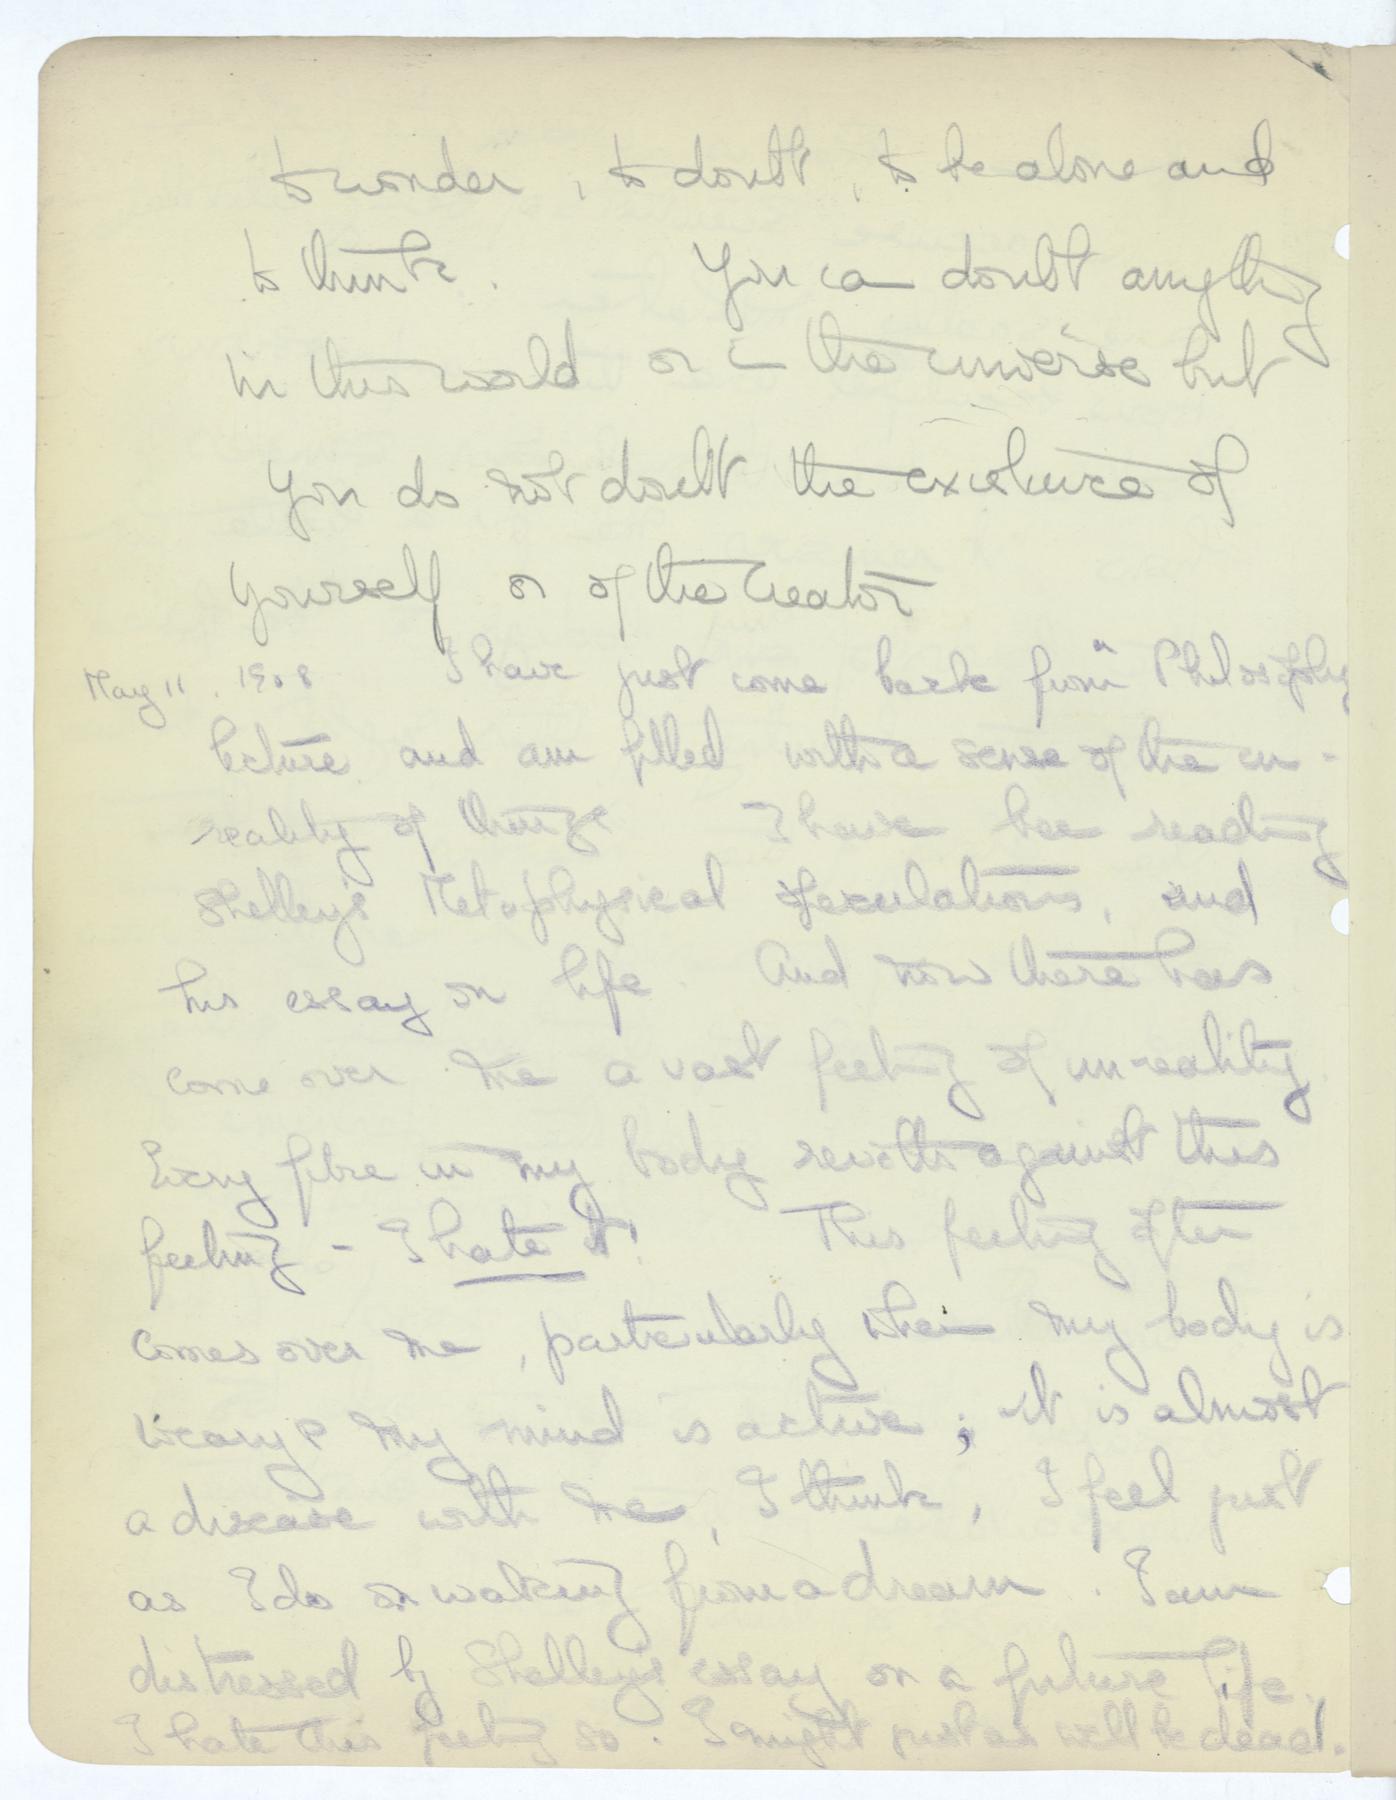 to wonder, to doubt, to be alone and
to think. You can doubt anything
in this world or in the universe but
you do not doubt the existence of
yourself or of the Creator
May 11, 1908 I have just come back from Philosophy
lecture and am filled with a sense of the un-
reality of things I have been reading
Shelley's Metaphysical speculations, and
his essay on life. And now there has
come over me a vast feeling of unreality.
Every fibre in my body revolts against this
feeling - I hate it! This feeling often
comes over me, particularly when my body is
weary & my mind is active; it is almost
a disease with me, I think, I feel just
as I do on waking from a dream. I am
distressed by Shelley's essay on a future life.
I hate this feeling so. I might just as well be dead.